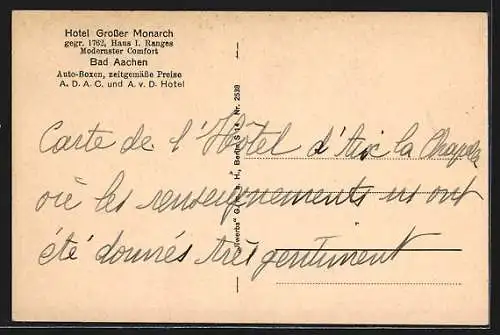 Hotel Großer Monarch
gegr. 1762, Haus I. Ranges
Modernster Comfort
Bad Aachen
Auto-Boxen, zeitgemäße Preise
A. D. A. C. und A. v. D. Hotel
Carte de l'Hôtel d'Aix la Chapelle
où les renseignements m'ont
été donnés très gentiment
G. m. b. H., Berlin S 14 Nr. 2539